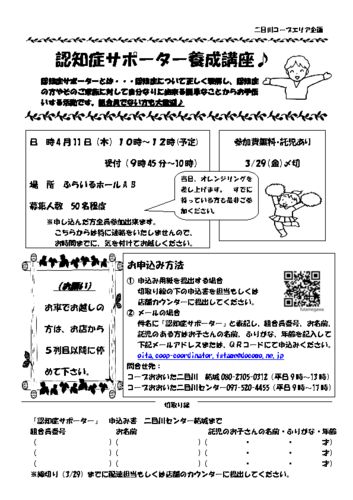 二目川コープエリア企画
認知症サポーター養成講座♪
認知症サポーターとは・・・認知症について正しく理解し、認知症
の方やそのご家族に対して自分なりに出来る簡単なことからお手伝
いする活動です。組合員でない方も大歓迎♪
日 時 4月11日(木)10時~12時(予定)
受付(9時45分~10時)
場 所 ふらいるホールAB
募集人数 50名程度
※申し込んだ方全員参加出来ます。
こちらからは特に連絡をいたしませんので、
お時間までに、気を付けてお越しください。
参加費無料・託児あり
3/29(金)〆切
当日、オレンジリングを
差し上げます。 すでに
持っている方も是非ご参
加ください。
(お願い)
お車でお越しの
方は、お店から
5列目以降に停
めて下さい。
お申込み方法
① 申込み用紙を提出する場合
切取り線の下の申込書を担当もしくは
店舗カウンターに提出してください。
② メールの場合
件名に「認知症サポーター」と表記し、組合員番号、お名前、
託児のある方はお子さんの名前、ふりがな、年齢を記入して
下記メールアドレスまたは、QRコードにて申込みください。
oita.coop-coordinator.futame@docomo.ne.jp
問合せ先:
コープおおいた二目川 結城 080-2105-0312(平日9時~13時)
コープおおいた二目川センター 097-520-4455(平日9時~17時)
切取り線
「認知症サポーター」 申込み書 二目川センター結城まで
組合員番号 お名前 託児のお子さんの名前・ふりがな・年齢
( ) ( ) ( ・ ・ 才)
( ) ( ) ( ・ ・ 才)
( ) ( ) ( ・ ・ 才)
※締切り(3/29)までに配達担当もしくは店舗のカウンターに提出してください。